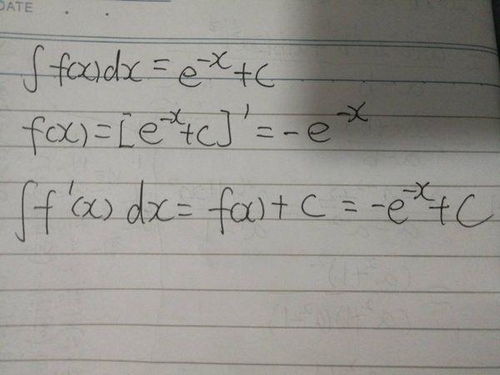 DATE
∫ f(x)dx = e^{-x} + C
f(x) = [e^{-x}+C]' = -e^{-x}
∫ f'(x) dx = f(x) + C = -e^{-x} + C